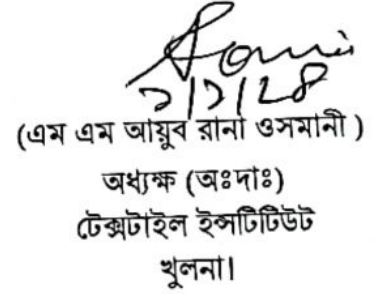 (এম এম আয়ুব রানা ওসমানী )
অধ্যক্ষ (অঃদাঃ)
টেক্সটাইল ইন্সটিটিউট
খুলনা।